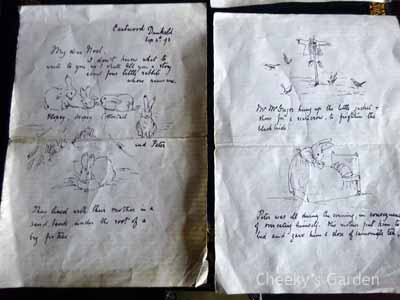 Eastwood Dunkeld
Sep 4th 93
My dear Noel,
I don't know what to
write to you, so I shall tell you a story
about four little rabbits
whose names were
Flopsy Mopsy Cottontail
and Peter
They lived with their mother in a
sand bank under the root of a
big fir tree.
Mr McGregor hung up the little jacket &
shoes for a scarecrow, to frighten the
black birds.
Peter was ill during the evening, in consequence
of over eating himself. His mother put him to
bed and gave him a dose of camomile tea,
Cheeky's Garden